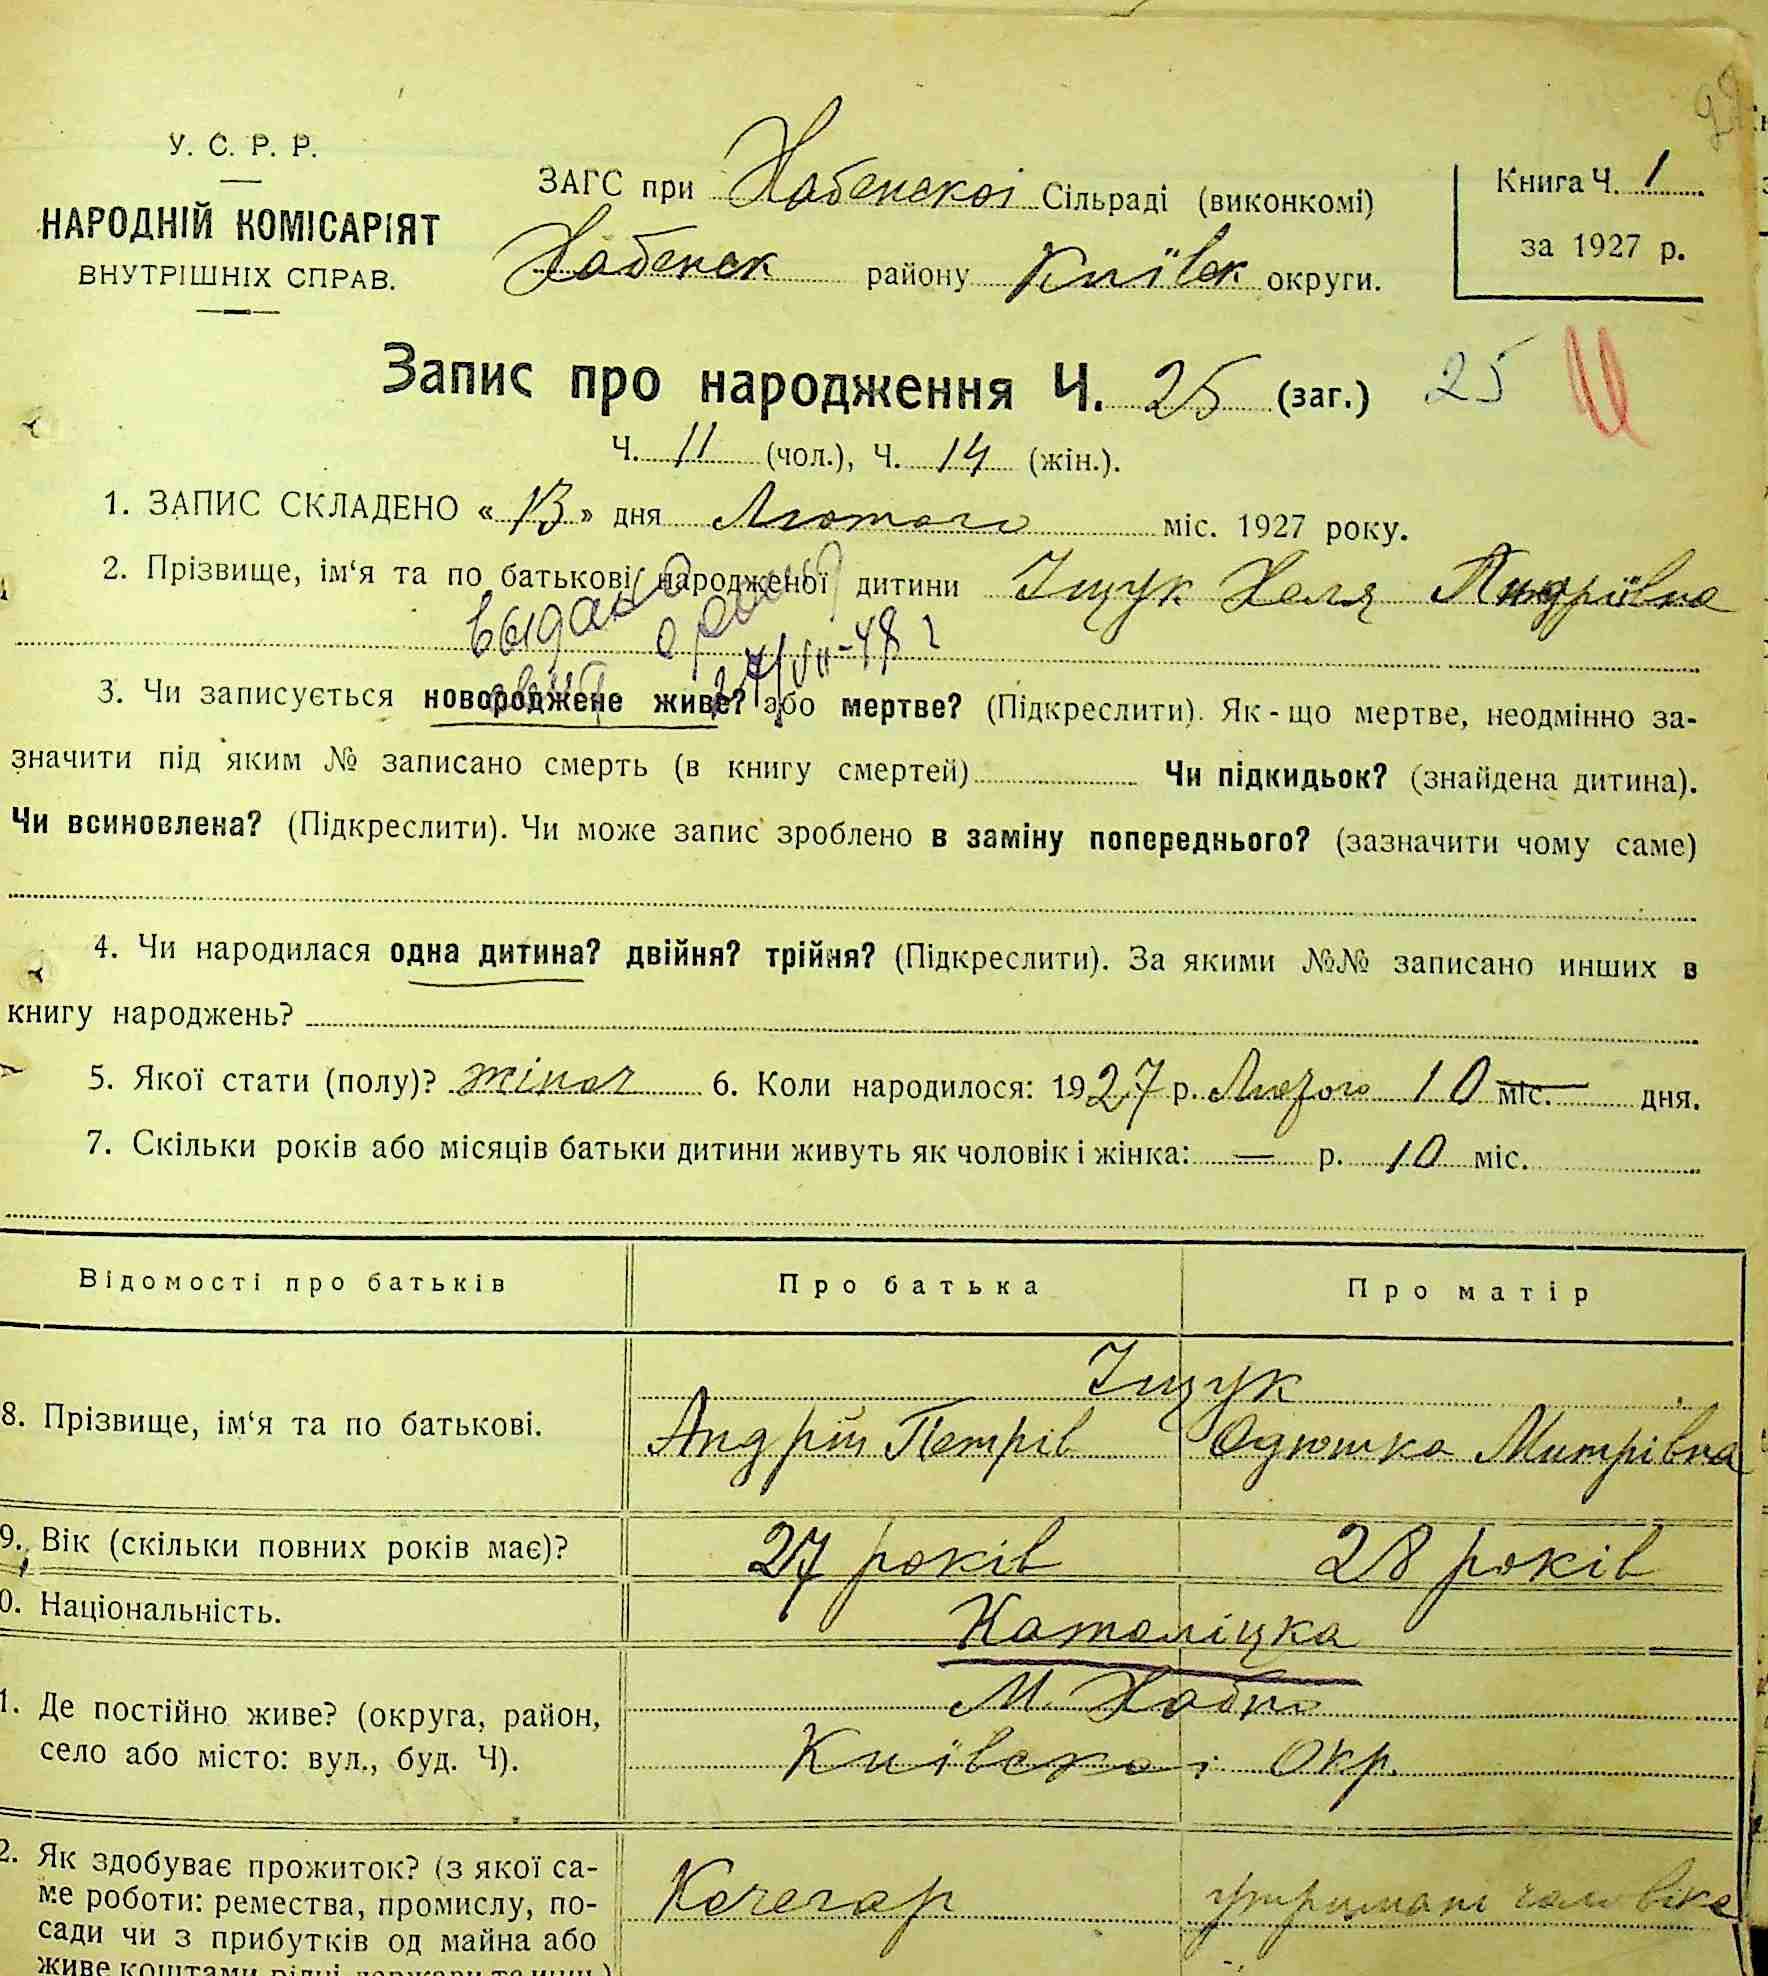 У. С. Р. Р.
НАРОДНІЙ КОМІСАРІЯТ
ВНУТРІШНІХ СПРАВ.
ЗАГС при Хабенскої Сільраді (виконкомі)
Хабенск району Київск округи.
Книга Ч. 1
за 1927 р.
Запис про народження Ч. 25 (заг.) 25
Ч. 11 (чол.), Ч. 14 (жін.).
1. ЗАПИС СКЛАДЕНО « 13 » дня Лютого міс. 1927 року.
2. Прізвище, ім‘я та по батькові народженої дитини Іщук Хеля Андріївна
выдано 27/VII-48 г
3. Чи записується новороджене живе? або мертве? (Підкреслити). Як-що мертве, неодмінно за-
значити під яким № записано смерть (в книгу смертей) Чи підкидьок? (знайдена дитина).
Чи всиновлена? (Підкреслити). Чи може запис зроблено в заміну попереднього? (зазначити чому саме)
4. Чи народилася одна дитина? двійня? трійня? (Підкреслити). За якими №№ записано инших в
книгу народжень?
5. Якої стати (полу)? жіноч 6. Коли народилося: 1927 р. Лютого 10 міс. дня.
7. Скільки років або місяців батьки дитини живуть як чоловік і жінка: — р. 10 міс.
Відомості про батьків Про батька Про матір
Іщук
8. Прізвище, ім‘я та по батькові. Андрій Петрів Одюшка Митрівна
9. Вік (скільки повних років має)? 27 років 28 років
0. Національність. Католіцка
1. Де постійно живе? (округа, район, М. Хабно
село або місто: вул., буд. Ч). Київскоі Окр.
2. Як здобуває прожиток? (з якої са-
ме роботи: ремества, промислу, по- Кочегар утриманні чоловіка
сади чи з прибутків од майна або
живе коштами рідні, держави та инш.)